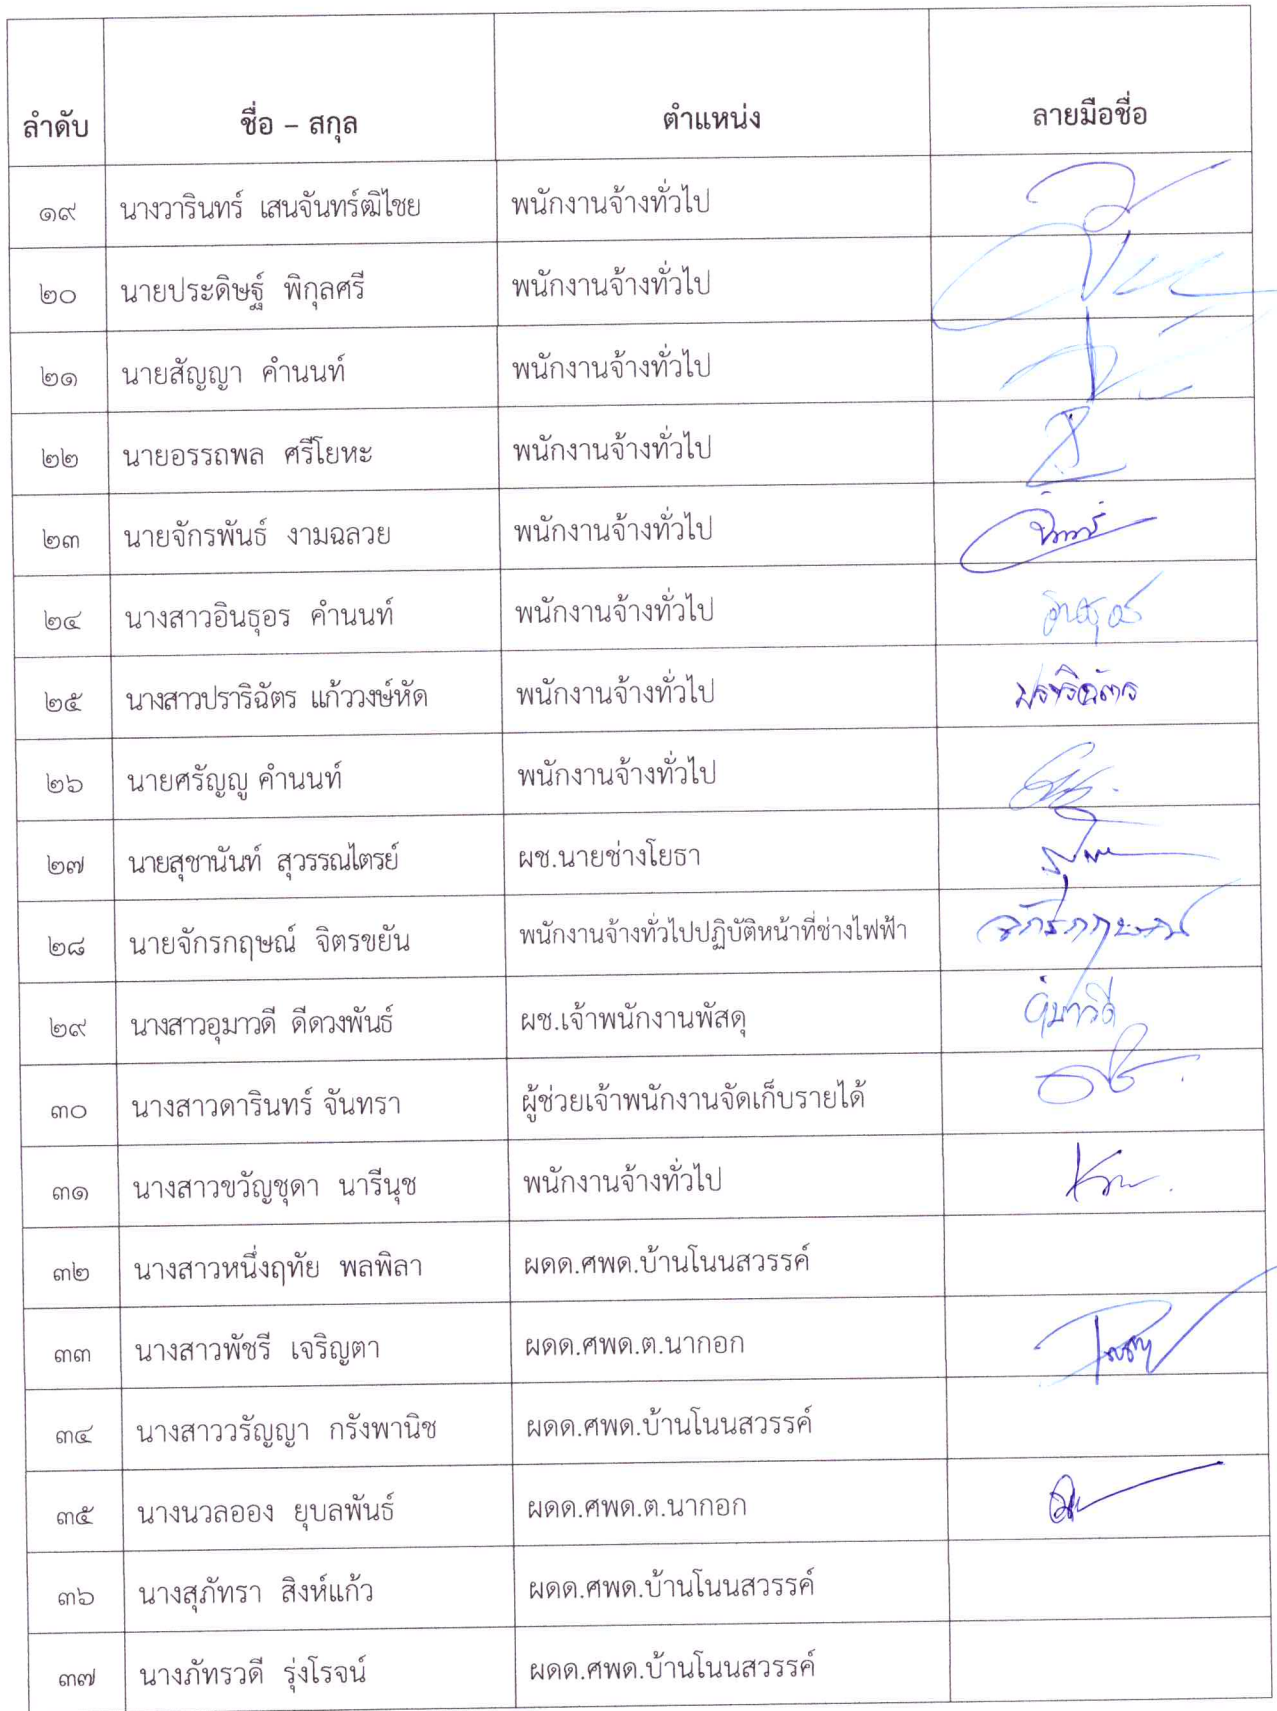 ลำดับ ชื่อ – สกุล ตำแหน่ง ลายมือชื่อ
๑๙ นางวารินทร์ เสนจันทร์ฒิไชย พนักงานจ้างทั่วไป
๒๐ นายประดิษฐ์ พิกุลศรี พนักงานจ้างทั่วไป
๒๑ นายสัญญา คำนนท์ พนักงานจ้างทั่วไป
๒๒ นายอรรถพล ศรีโยหะ พนักงานจ้างทั่วไป
๒๓ นายจักรพันธ์ งามฉลวย พนักงานจ้างทั่วไป
๒๔ นางสาวอินธุอร คำนนท์ พนักงานจ้างทั่วไป อินธุอร
๒๕ นางสาวปราริฉัตร แก้ววงษ์หัด พนักงานจ้างทั่วไป ปราริฉัตร
๒๖ นายศรัญญู คำนนท์ พนักงานจ้างทั่วไป
๒๗ นายสุชานันท์ สุวรรณไตรย์ ผช.นายช่างโยธา
๒๘ นายจักรกฤษณ์ จิตรขยัน พนักงานจ้างทั่วไปปฏิบัติหน้าที่ช่างไฟฟ้า จักรกฤษณ์
๒๙ นางสาวอุมาวดี ดีดวงพันธ์ ผช.เจ้าพนักงานพัสดุ อุมาวดี
๓๐ นางสาวดารินทร์ จันทรา ผู้ช่วยเจ้าพนักงานจัดเก็บรายได้
๓๑ นางสาวขวัญชุดา นารีนุช พนักงานจ้างทั่วไป
๓๒ นางสาวหนึ่งฤทัย พลพิลา ผดด.ศพด.บ้านโนนสวรรค์
๓๓ นางสาวพัชรี เจริญตา ผดด.ศพด.ต.นากอก
๓๔ นางสาววรัญญา กรังพานิช ผดด.ศพด.บ้านโนนสวรรค์
๓๕ นางนวลออง ยุบลพันธ์ ผดด.ศพด.ต.นากอก
๓๖ นางสุภัทรา สิงห์แก้ว ผดด.ศพด.บ้านโนนสวรรค์
๓๗ นางภัทรวดี รุ่งโรจน์ ผดด.ศพด.บ้านโนนสวรรค์